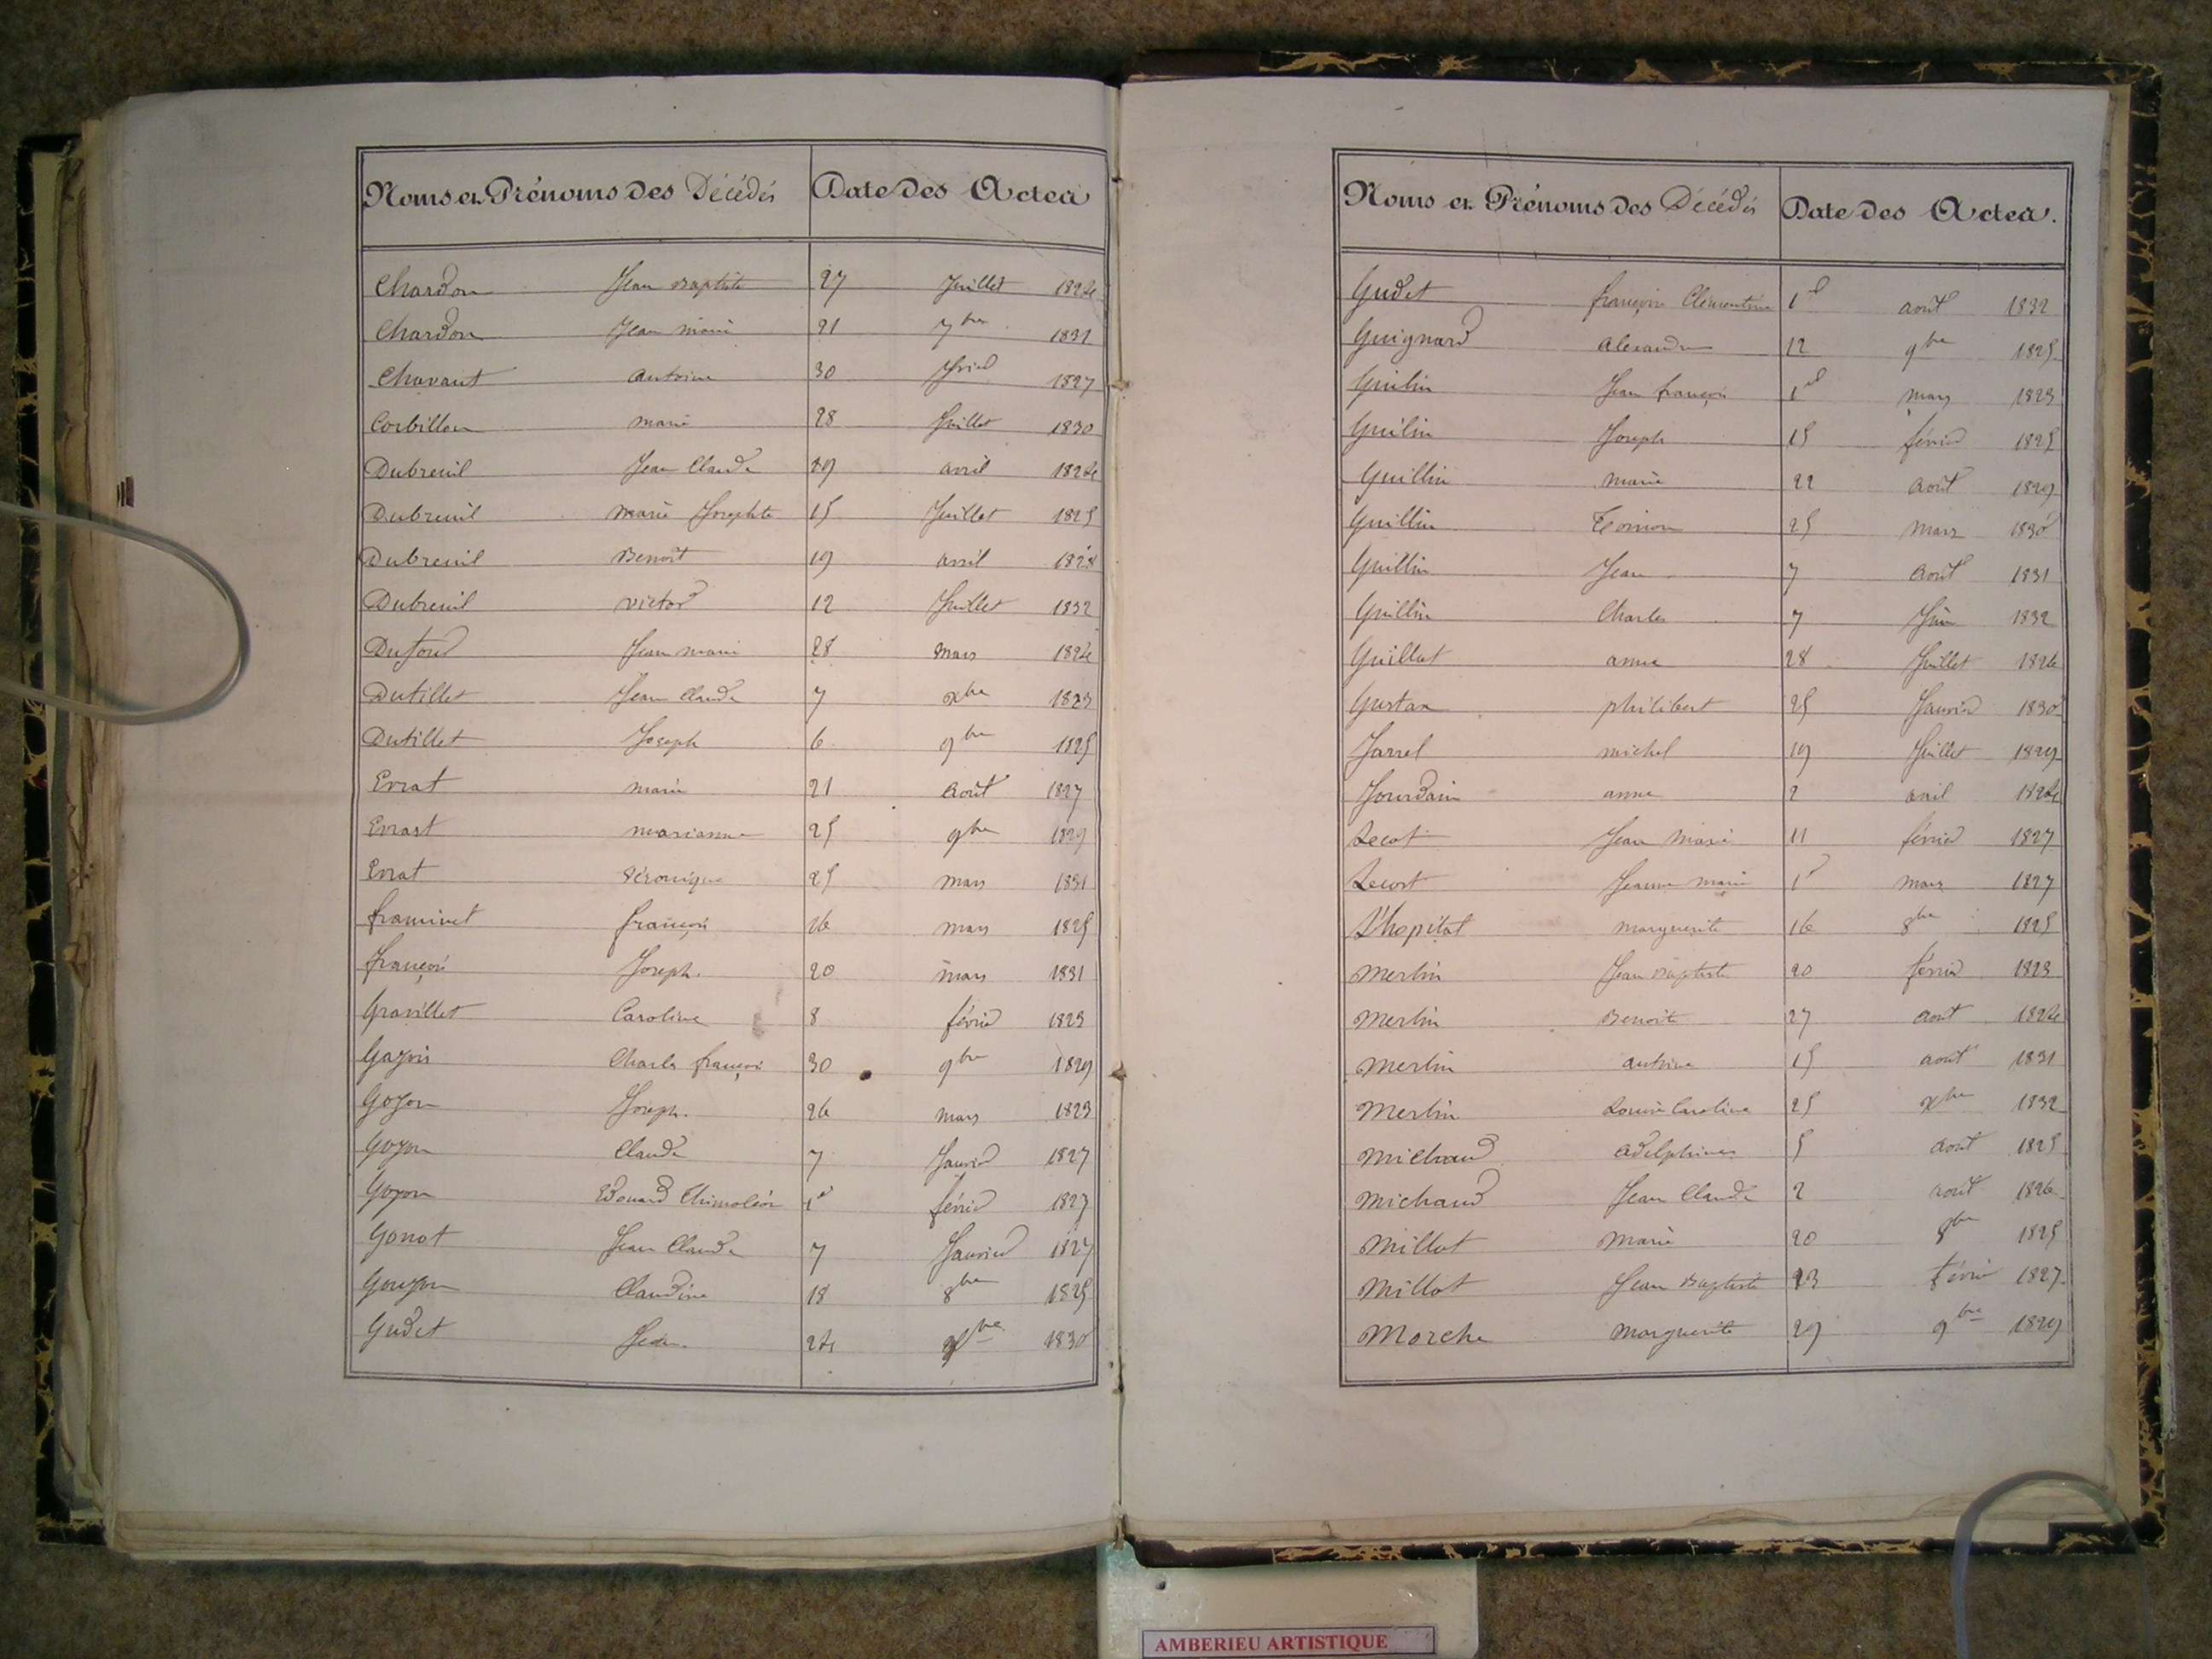 Noms et Prénoms des Décédés Date des Actes
Chardon Jean Baptiste 27 Juillet 1824
Chardon Jean marie 21 7bre 1831
Chavant antoine 30 1827
Corbillon marie 28 Juillet 1830
Dubreuil Jean Claude 29 avril 1824
Dubreuil marie Josephte 15 Juillet 1825
Dubreuil Benoit 19 avril 1828
Dubreuil victor 12 Juillet 1832
Dufour Jean marie 28 mars 1824
Dutillet Jean Claude 7 xbre 1823
Dutillet Joseph 6 9bre 1825
Evrat marie 21 août 1827
Evrast marianne 25 9bre 1829
Evrat véronique 25 mars 1831
framinet françois 26 mars 1825
françois Joseph. 20 mars 1831
Gravillet Caroline 8 février 1823
Charles françois 30 9bre 1829
Goyon Joseph. 26 mars 1823
Goyon Claude 7 Janvier 1827
Goyon Edouard Thimoléon 1er févrie 1827
Gonot Jean Claude 7 Janvier 1827
Gouyon Claudine 18 8bre 1825
Gudet Jean. 24 1830
Noms et Prénoms des Décédés Date des Actes.
Gudet françoise Clémentine 1er août 1832
Guignard alexandre 12 9bre 1825
Guilin Jean françois 1er mars 1823
Guilin Joseph 15 févrie 1825
Guillin marie 22 août 1829
Guillin 25 mars 1830
Guillin Jean 7 août 1831
Guillin Charles 7 Juin 1832
Guillot anne 28 Juillet 1826
Gustan philibert 25 Janvier 1830
Jarrel michel 19 Juillet 1829
Jourdain anne 2 avril 1824
Lecot Jean Marie 11 févrie 1827
Lecort Jeanne marie 1er mars 1827
L'hopital marguerite 16 8bre 1825
Merlin Jean Baptiste 20 févrie 1823
Merlin Benoite 27 août 1824
Merlin antoine 15 août 1831
Merlin Louise Caroline 25 xbre 1832
Michaud adelphine 5 août 1825
Michaud Jean Claude 2 août 1826
Millot Marie 20 8bre 1825
Millot Jean Baptiste 23 févrie 1827
Morche Marguerite 29 9bre 1829
AMBERIEU ARTISTIQUE